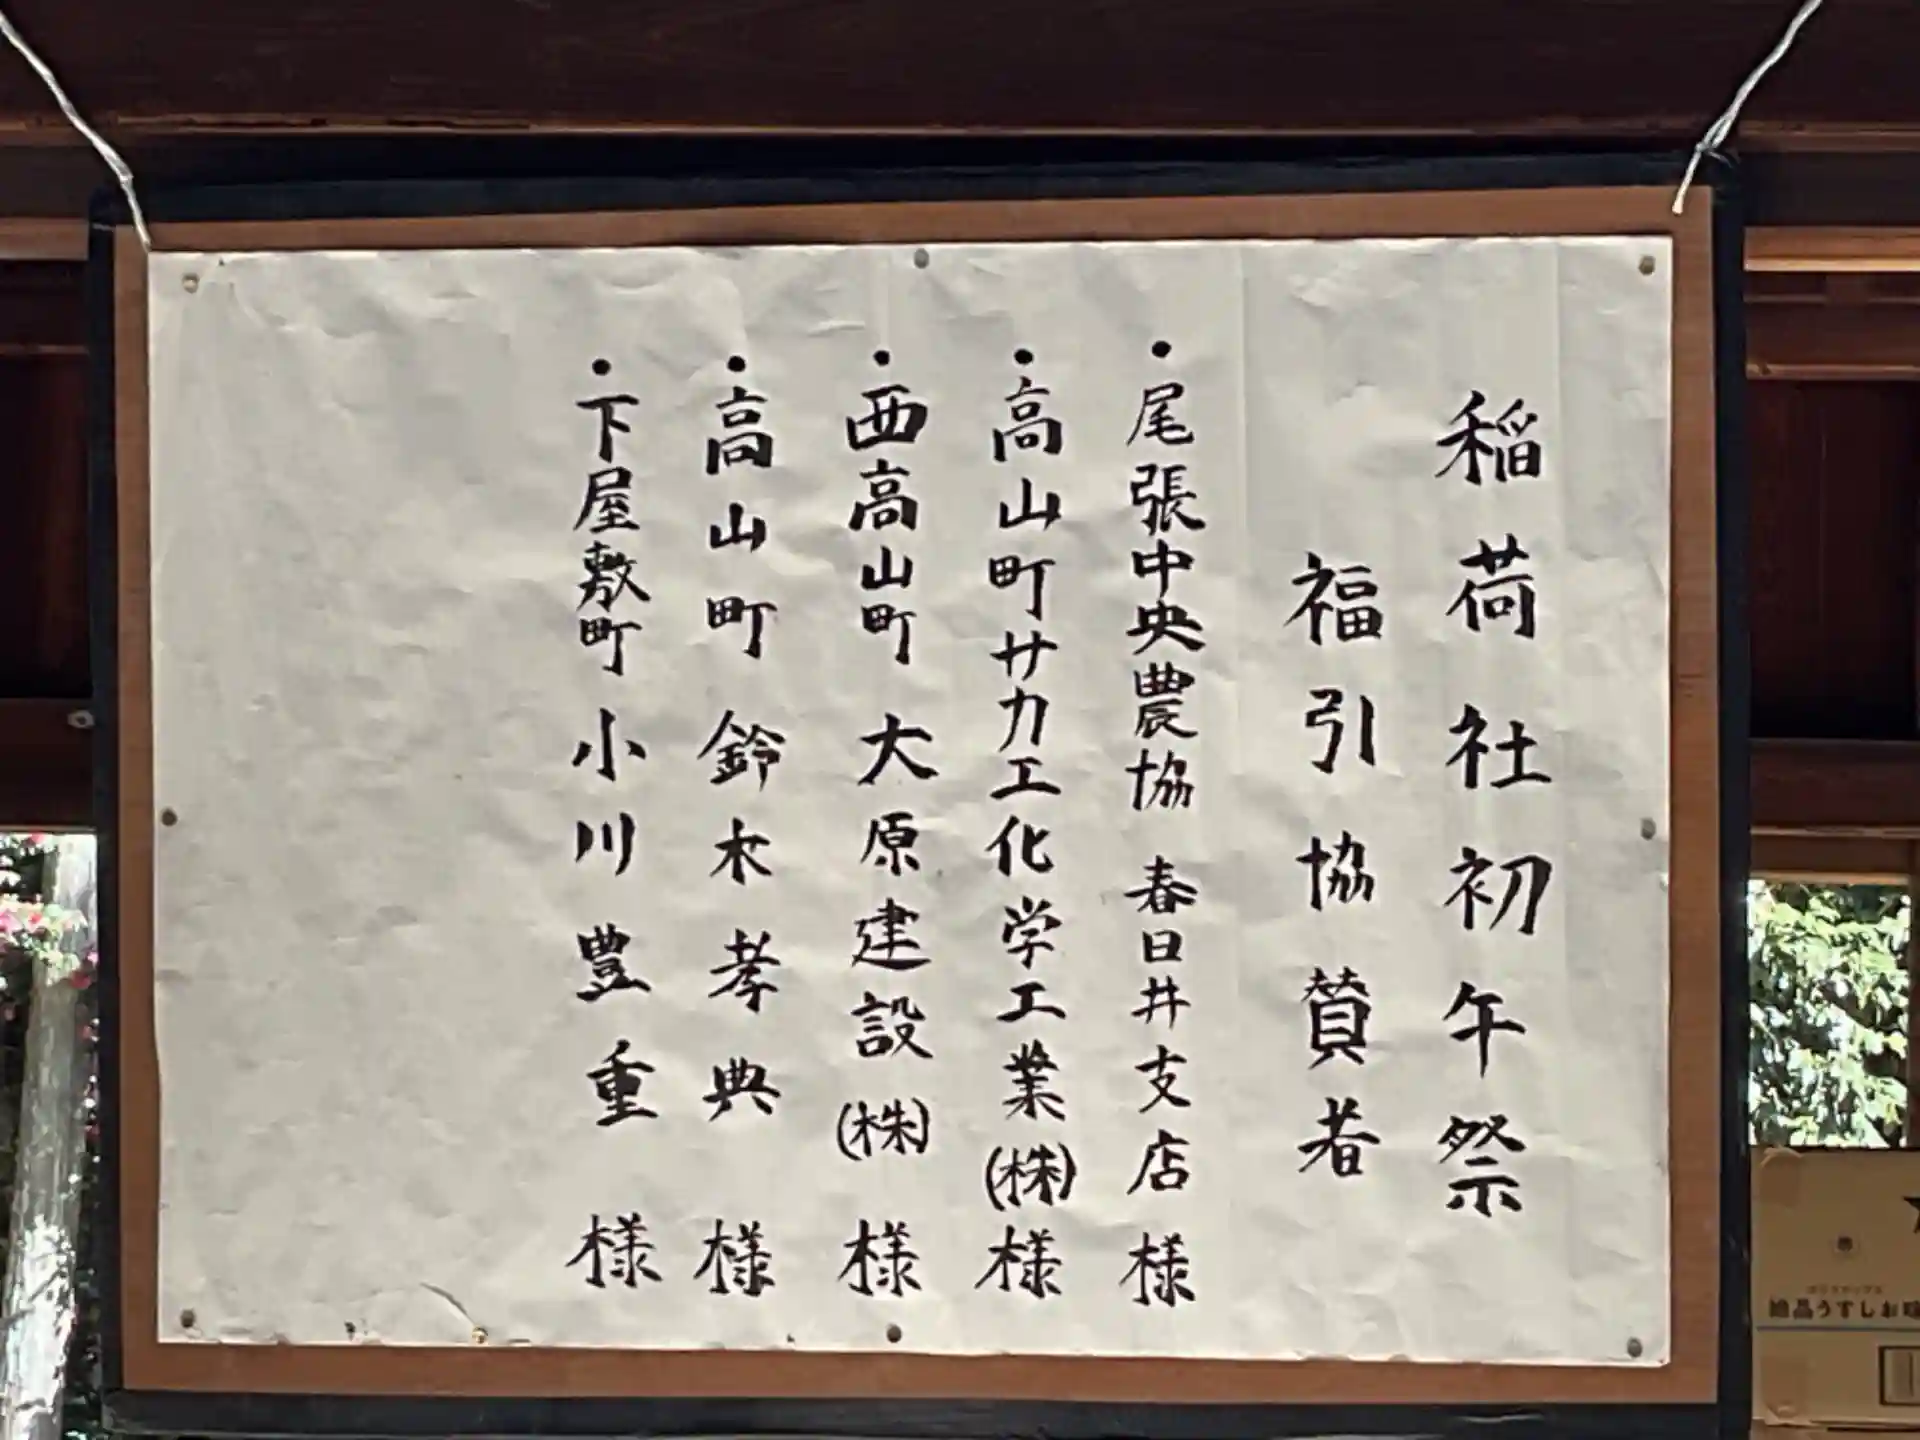 稲荷社初午祭
福引協賛者
・尾張中央農協 春日井支店 様
・高山町サカエ化学工業(株)様
・西高山町 大原建設(株) 様
・高山町 鈴木孝典 様
・下屋敷町 小川豊重 様